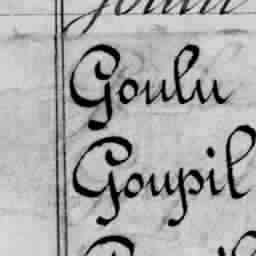 Goulu
Goupil